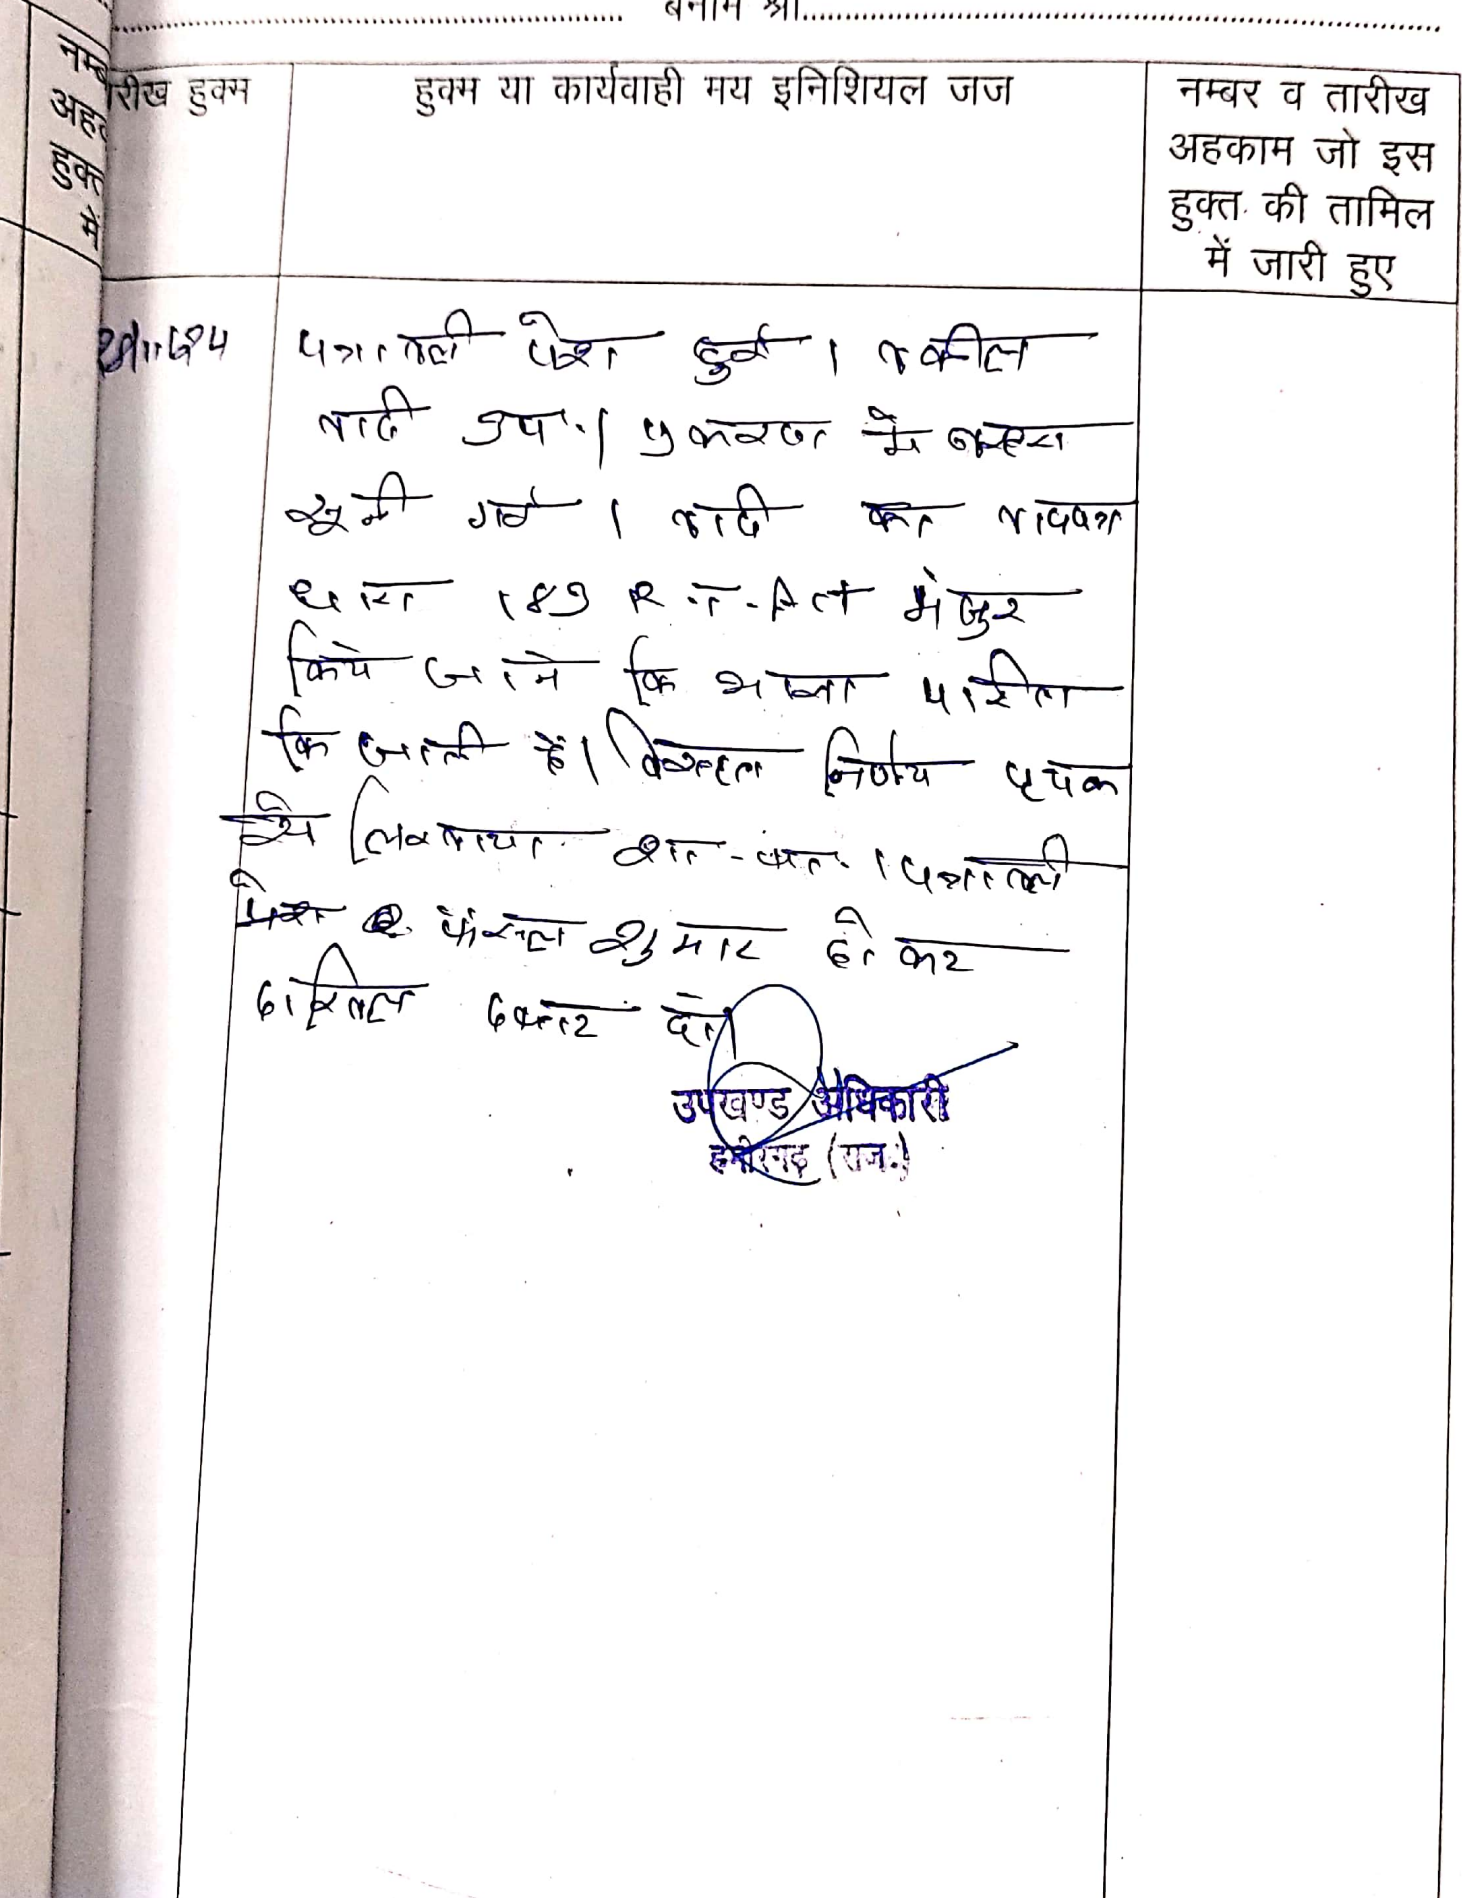 बनाम श्री
नम्ब
अह
हुक्त
में
रीख हुक्म
हुक्म या कार्यवाही मय इनिशियल जज
नम्बर व तारीख
अहकाम जो इस
हुक्त की तामिल
में जारी हुए
पत्रावली पेश हुई । वकील
वादी उप.। प्रकरण मे बहस
सुनी गई । वादी का वादपत्र
धारा 183 R.T.Act मंजुर
किये जाने कि आज्ञा पारीत
कि जाती हैं। विस्तृत निर्णय पृथक
से लिखवाया
पत्रावली
फैसल शुमार होकर
दाखिल दफ्तर हो।
उपखण्ड अधिकारी
हमीरगढ़ (राज.)